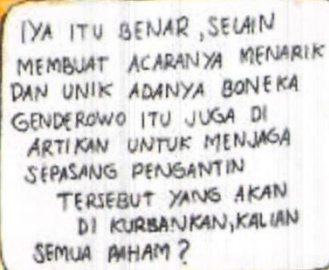 IYA ITU BENAR, SELAIN
MEMBUAT ACARANYA MENARIK
DAN UNIK ADANYA BONEKA
GENDEROWO ITU JUGA DI
ARTIKAN UNTUK MENJAGA
SEPASANG PENGANTIN
TERSEBUT YANG AKAN
DI KURBANKAN, KALIAN
SEMUA PAHAM?